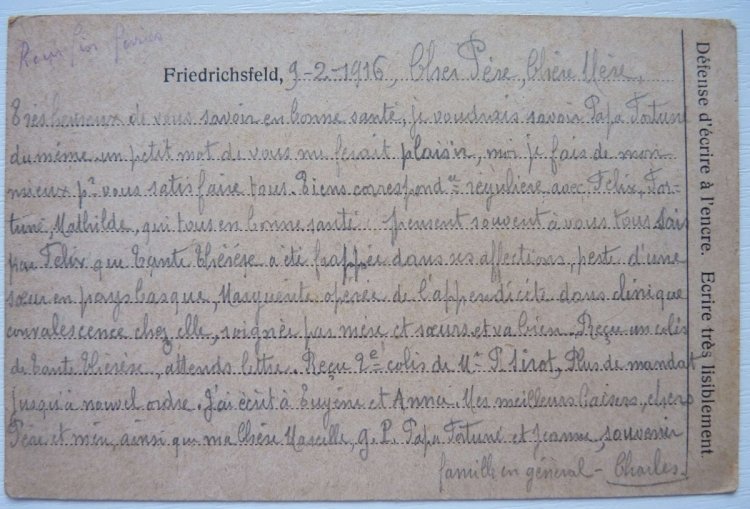 Friedrichsfeld, 9-2-1916, Cher Père, Chère Mère,
Très heureux de vous savoir en bonne santé, je voudrais savoir Papa Fortuné
du même. un petit mot de vous me ferait plaisir, moi je fais de mon
mieux pr vous satisfaire tous. Tiens correspondce régulière avec Félix, For-
tuné, Mathilde, qui tous en bonne santé pensent souvent à vous tous Sais
par Félix que Tante Thérèse a été frappée dans ses affections, perte d'une
sœur en pays basque, Marguerite opérée de l'appendicite dans clinique
convalescence chez elle, soignée par mère et sœurs et va bien. Reçu un colis
de Tante Thérèse, attends lettre. Reçu 2e colis de Mr P. Sirot, Plus de mandat
jusqu'à nouvel ordre. J'ai écrit à Eugène et Anna. Mes meilleurs baisers, chers
Père et mère, ainsi que ma Chère Marcelle, g. P. Papa Fortuné et Jeanne, souvenir
famille en général - Charles.
Défense d'écrire à l'encre. Ecrire très lisiblement